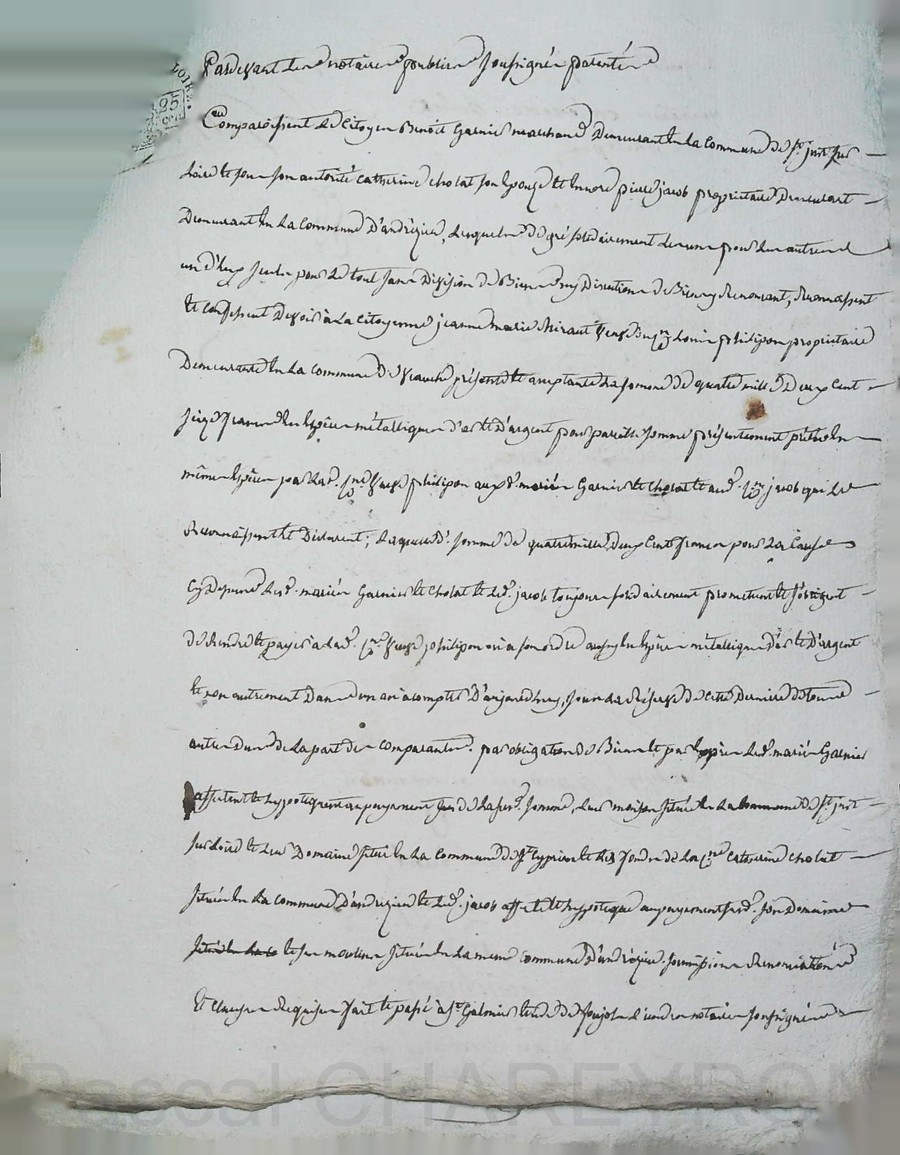 LOIRE
25
cen
Pardevant les notaires publics soussignés patentés
Comparoissent le Citoyen Benoit Garnier marchand Demeurant en la Commune de St. just sur
Loire et sous son autorité catherine cholat son Epouze et encore pierre jacob propriétaire Demeurant
Demeurant en la Commune D'andrézieu, Lesquels de gré solidairement les uns pour les autres et
un d'Eux seul pour le tout sans Division de Biens ny Discution de Biens y Renoncant, Reconnoissent
et confessent Devoir à la Citoyenne jeanne marie Louis philipon propriétaire
Demeurante en la Commune De Veauche présente et acceptante la somme de quatre mille Deux Cent
francs En Espèces métalliques d'or et D'argent pour pareille somme présentement prêtée En
même Espèces par lad. philipon auxd. mariés Garnier et Cholat et aud. jacob qui le
Reconnoissent et Déclarent; laquelle d. somme de quatre mille Deux Cents francs pour la Cause
Cy Devant lesd. mariés Garnier et Cholat et led. jacob toujours solidairement promettent et s'obligent
de Rendre et payer à lad. philipon ou à son ordre aussy En Espèces métalliques D'or et D'argent
et non autrement Dans un an à compter D'aujourd'huy, sous la Réserve de cette Dernière
de la part des comparants. par obligation de Biens et par Exprès lesd. mariés Garnier
affectent et hypotèquent au payement de lad. somme, leur maison située En la Commune de St. just
sur Loire et leur Domaine situé En la Commune de St. Cyprien et les fonds de la Catherine Cholat
situés En la Commune D'andrézieu et led. jacob affecte et hypotèque au payement son Domaine
situé En la et ses moulins situés En la même Commune D'andrézieu. soumissions Renonciations
Et Clauses Requises fait et passé à St. Galmier Etude de l'un des notaires soussignés
Pascal CHAREYRON